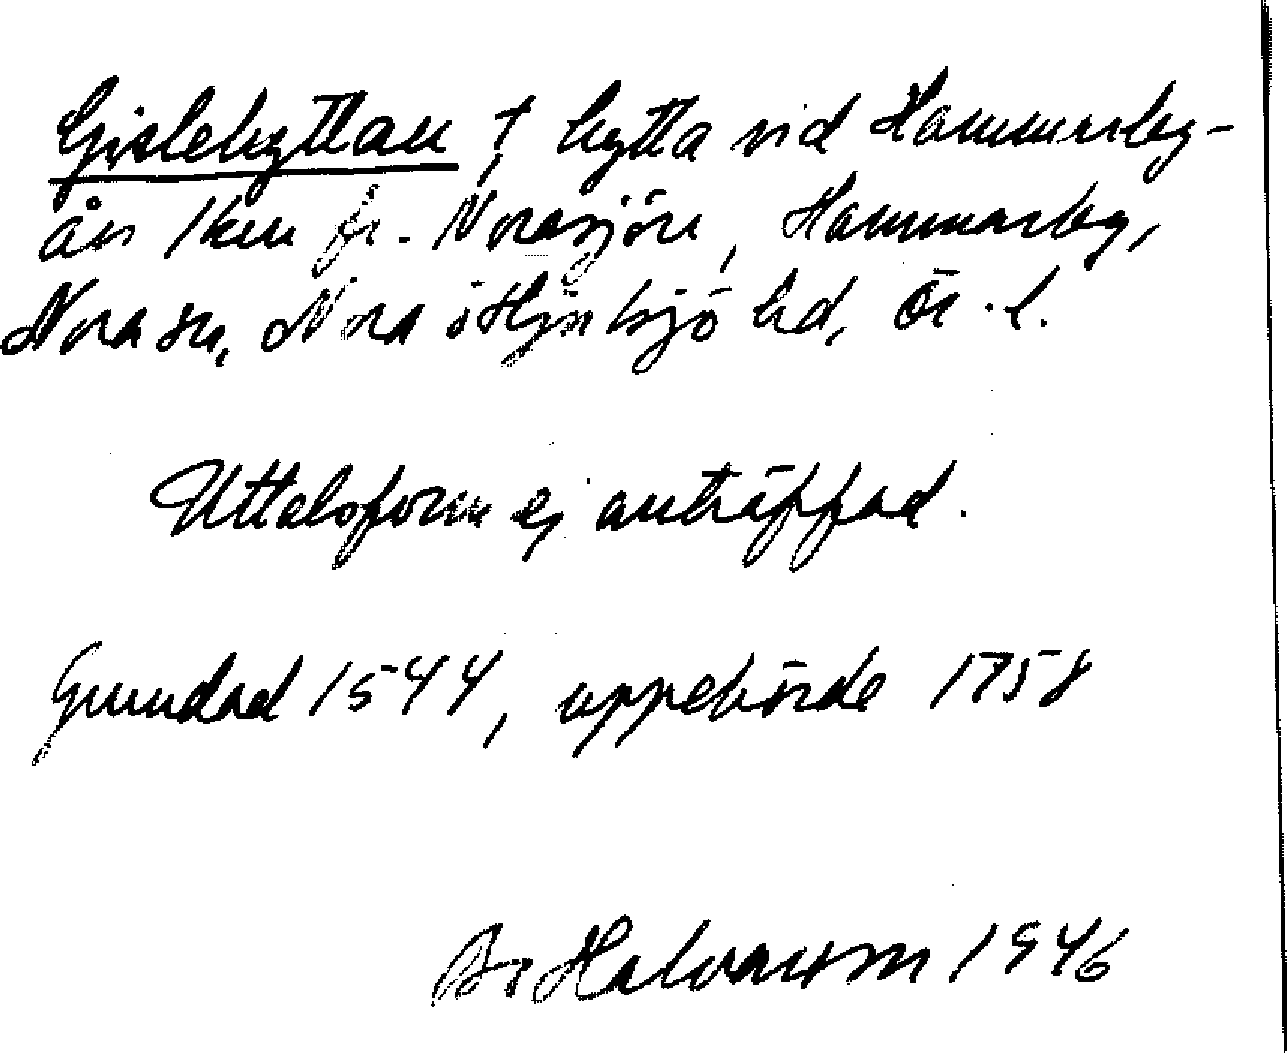 Gislehyttan †, hytta vid Hammarby-
ån 1 km fr. Norasjön, Hammarby,
Nora sn, Nora o Hjulsjö hd, Ör. l.
Uttalsform ej anträffad.
Grundad 1544, upphörde 1758
Bo Halvarsson 1946